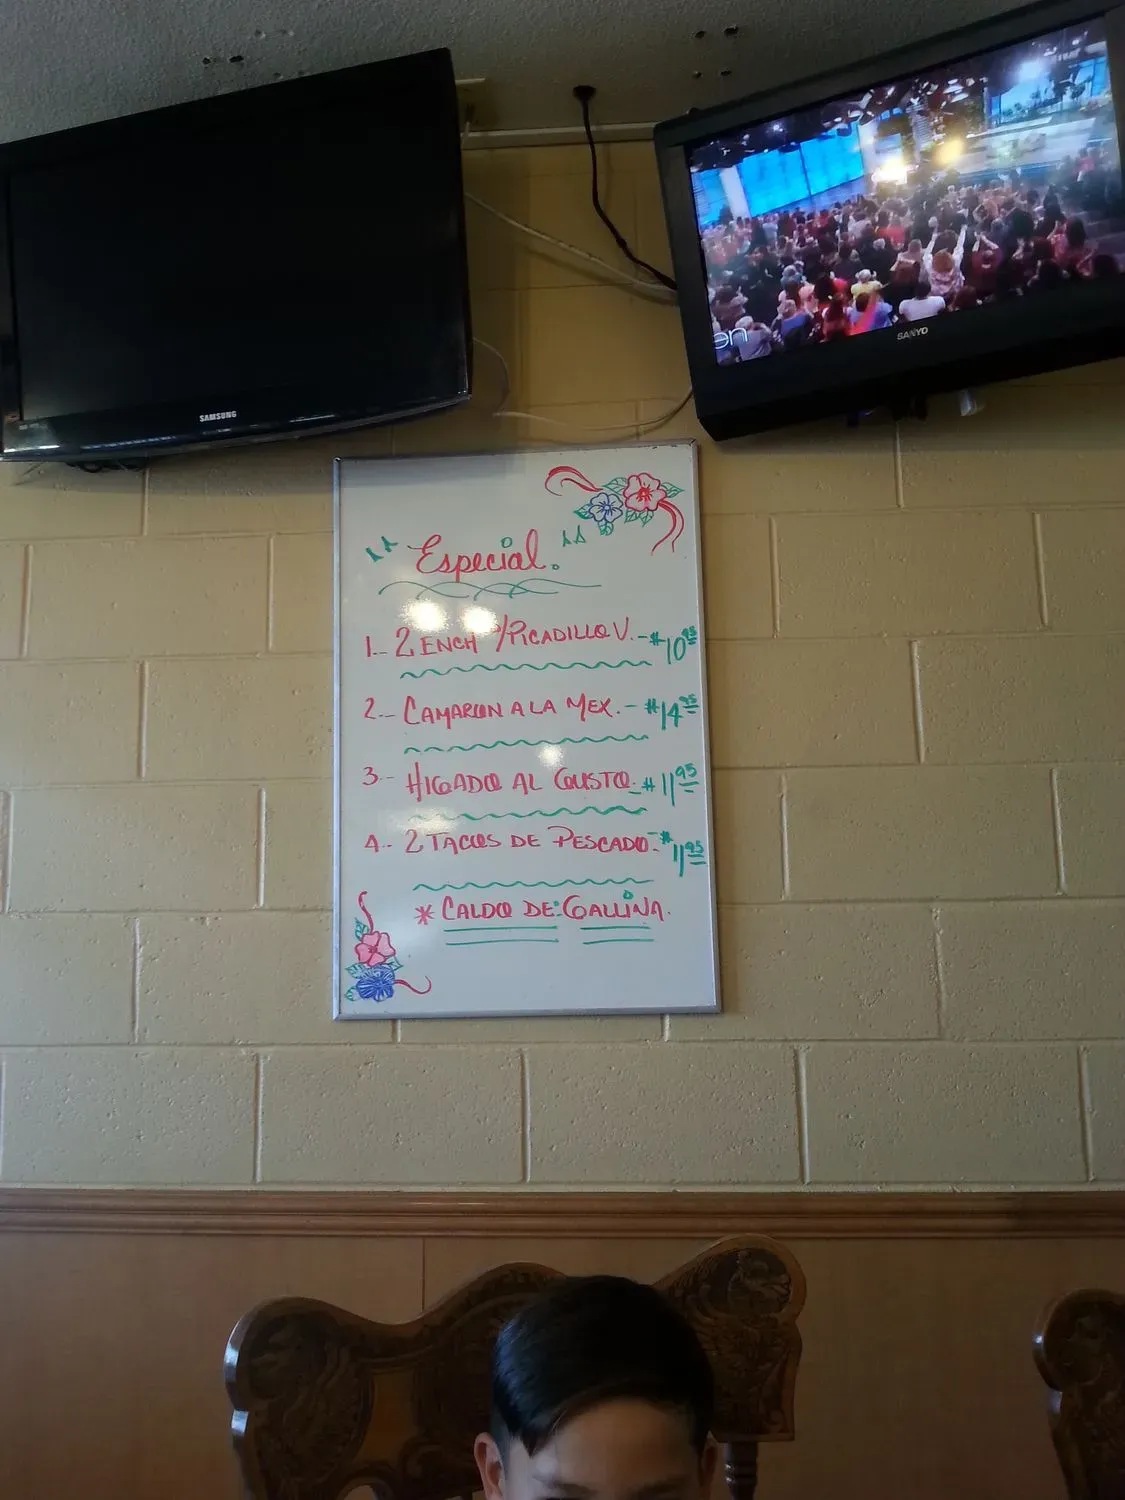 SAMSUNG
SANYO
en
"Especial."
1.- 2 ENCH P/PICADILLO V. - $10 95
2.- CAMARON A LA MEX. - $14 95
3.- HIGADO AL GUSTO. - $11 95
4.- 2 TACOS DE PESCADO. - $11 95
* CALDO DE: GALLINA.